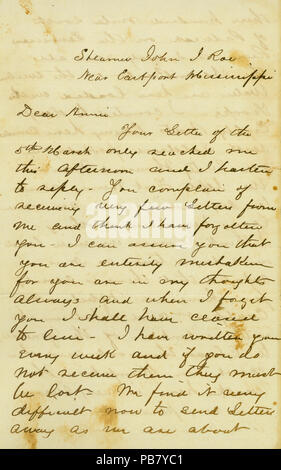 Steamer John J Roe
Near Eastport Mississippi
Dear Annie
Your Letter of the
5th March only reached me
this afternoon and I hasten
to reply - You complain of
receiving very few Letters from
me and think I have forgotten
you - I can assure you that
you are entirely mistaken
for you are in my thoughts
always and when I forget
you I shall have ceased
to live - I have written you
every week and if you do
not receive them they must
be lost - We find it very
difficult now to send Letters
away as we are about
alamy
alamy
PB7YC1
www.alamy.com